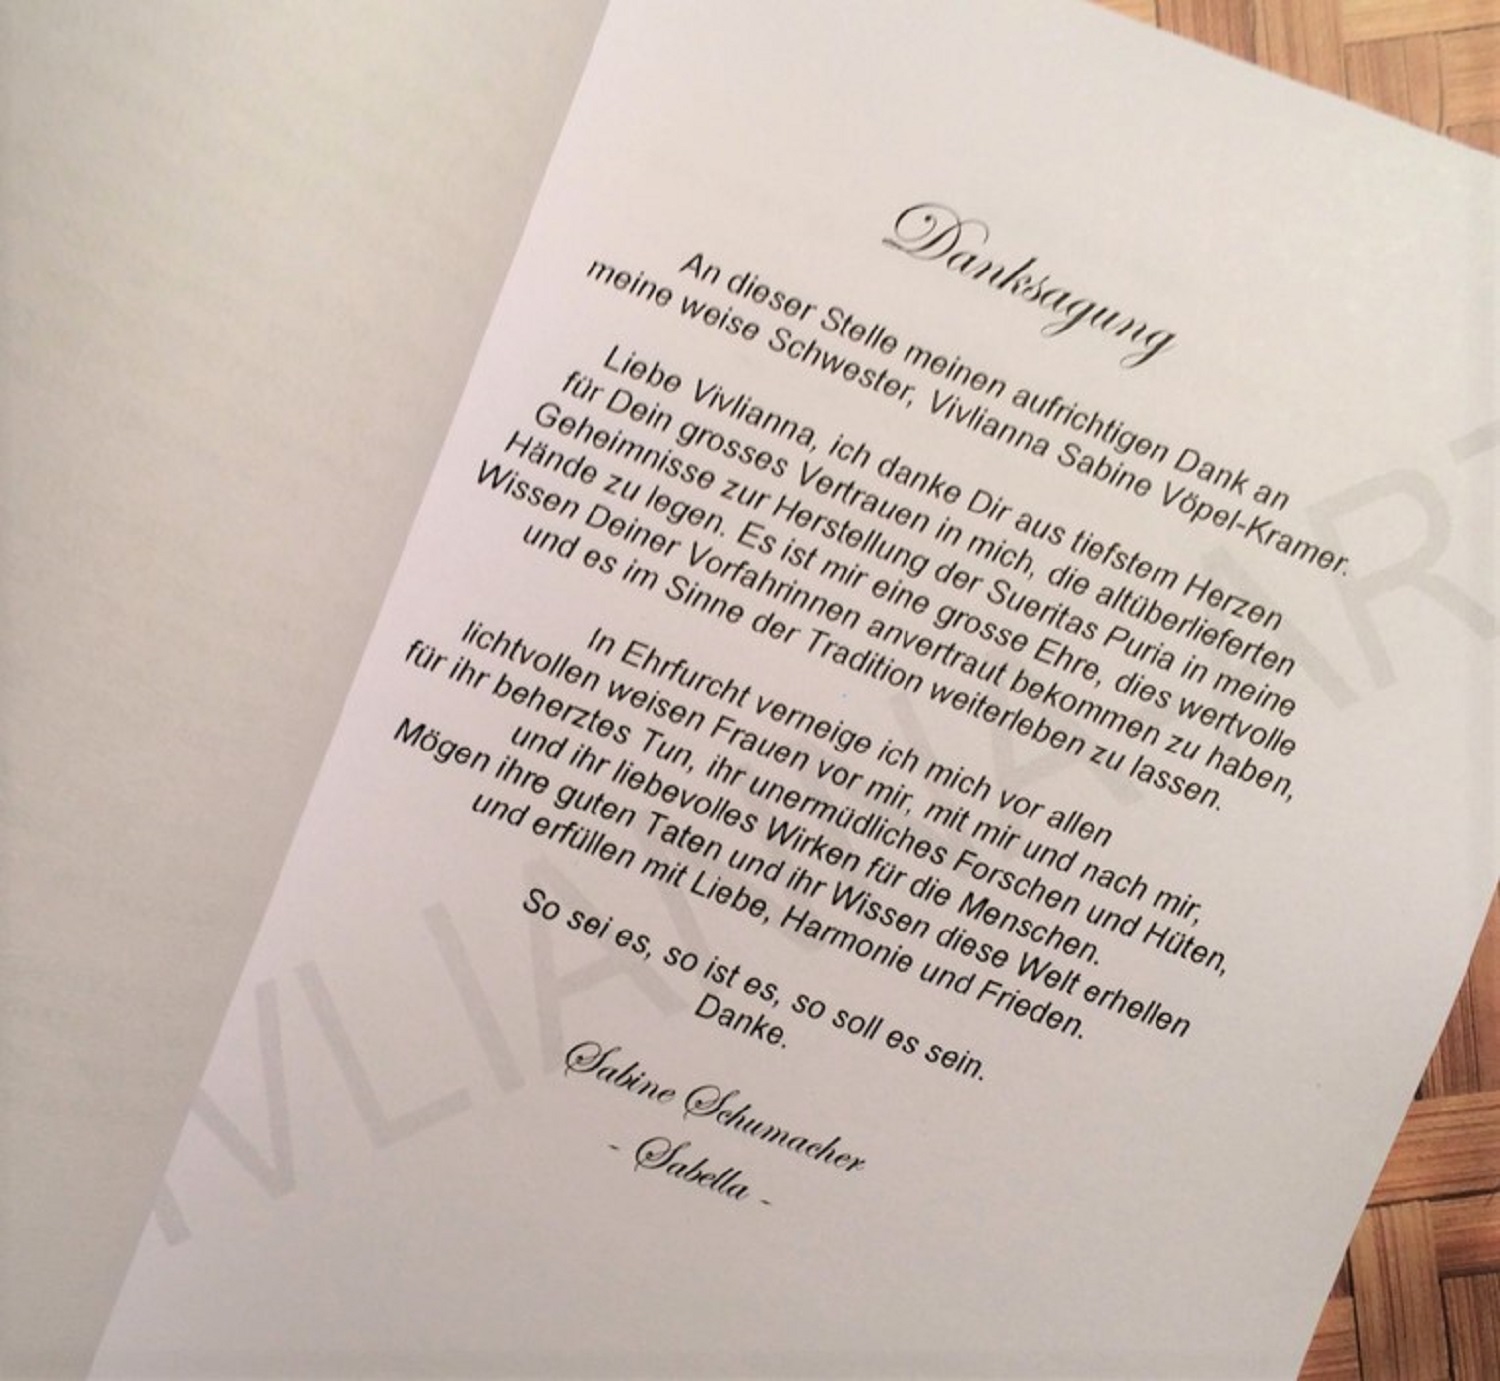 Danksagung
An dieser Stelle meinen aufrichtigen Dank an
meine weise Schwester, Vivlianna Sabine Vöpel-Kramer.
Liebe Vivlianna, ich danke Dir aus tiefstem Herzen
für Dein grosses Vertrauen in mich, die altüberlieferten
Geheimnisse zur Herstellung der Sueritas Puria in meine
Hände zu legen. Es ist mir eine grosse Ehre, dies wertvolle
Wissen Deiner Vorfahrinnen anvertraut bekommen zu haben,
und es im Sinne der Tradition weiterleben zu lassen.
In Ehrfurcht verneige ich mich vor allen
lichtvollen weisen Frauen vor mir, mit mir und nach mir,
für ihr beherztes Tun, ihr unermüdliches Forschen und Hüten,
und ihr liebevolles Wirken für die Menschen.
Mögen ihre guten Taten und ihr Wissen diese Welt erhellen
und erfüllen mit Liebe, Harmonie und Frieden.
So sei es, so ist es, so soll es sein.
Danke.
Sabine Schumacher
- Sabella -